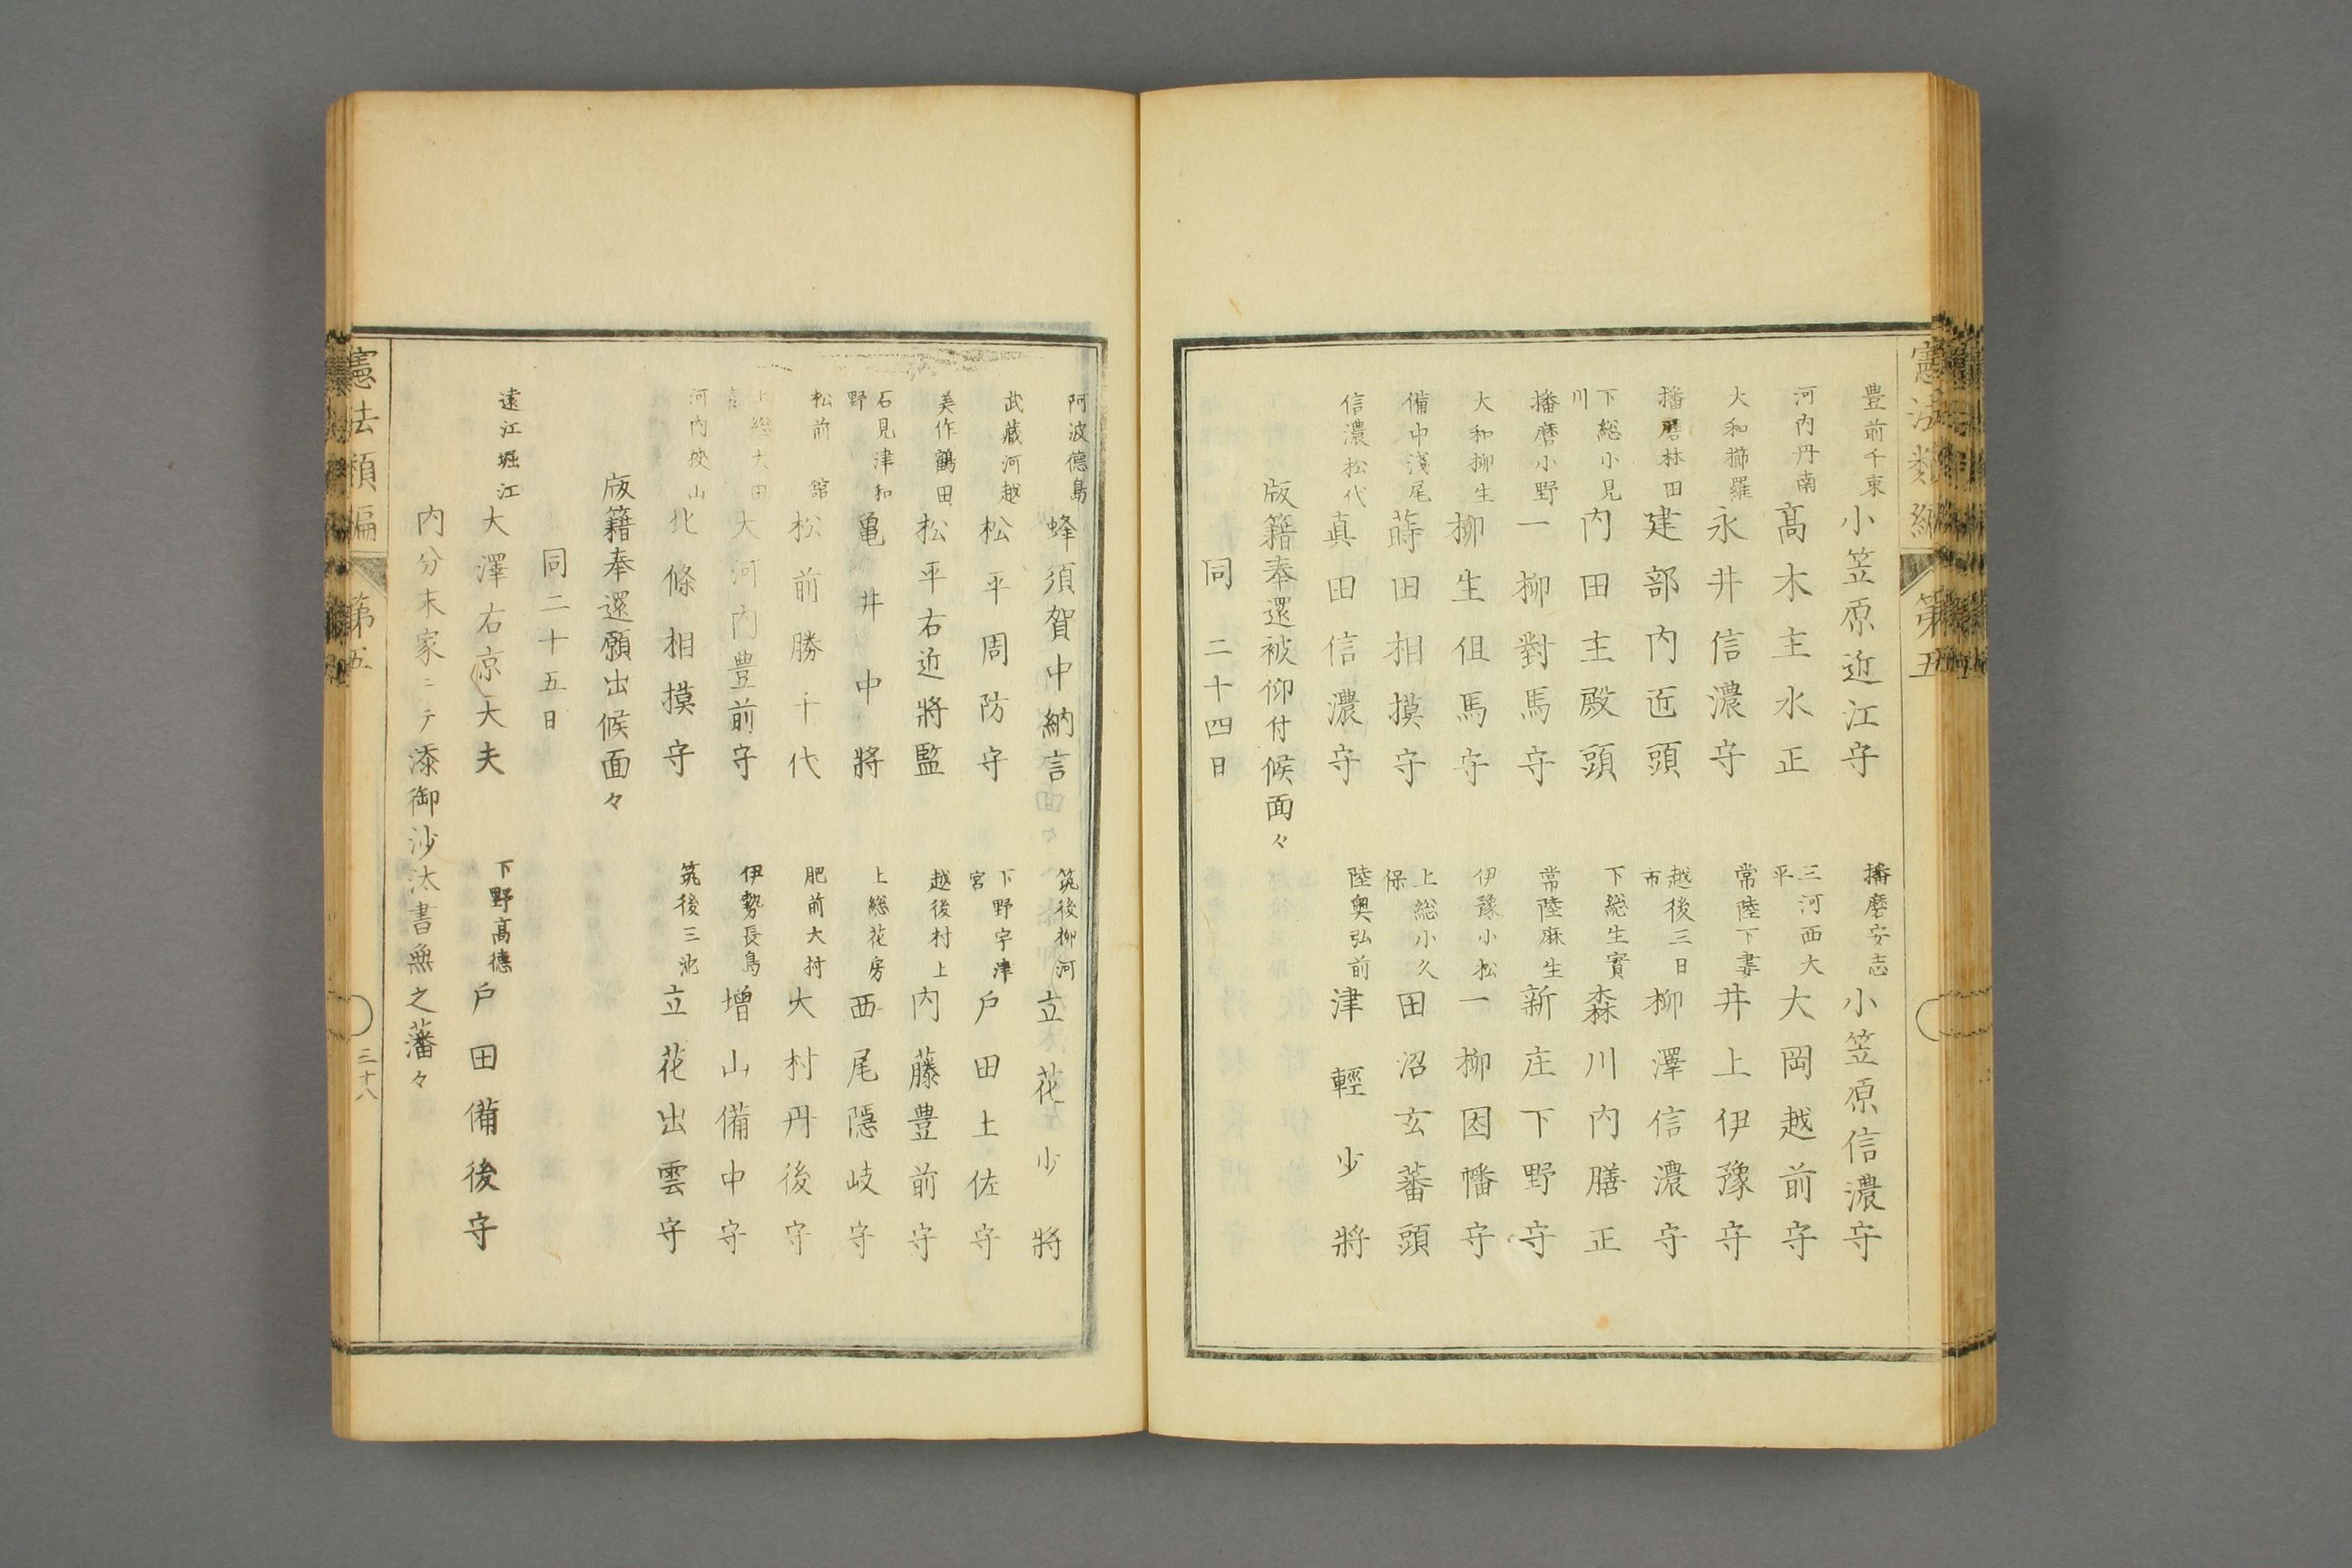 憲法類編 第五
豊前千束 小笠原近江守 播磨安志 小笠原信濃守
河内丹南 髙木主水正 三河西大平 大岡越前守
大和櫛羅 永井信濃守 常陸下妻 井上伊豫守
播磨林田 建部内匠頭 越後三日市 柳澤信濃守
下総小見川 内田主殿頭 下総生實 森川内膳正
播磨小野 一柳對馬守 常陸麻生 新庄下野守
大和柳生 柳生但馬守 伊豫小松 一柳因幡守
備中淺尾 蒔田相摸守 上総小久保 田沼玄蕃頭
信濃松代 真田信濃守 陸奥弘前 津輕少將
版籍奉還被仰付候面々
同二十四日
阿波德島 蜂須賀中納言 筑後柳河 立花少將
武蔵河越 松平周防守 下野宇津宮 戸田土佐守
美作鶴田 松平右近將監 越後村上 内藤豊前守
石見津和野 亀井中將 上総花房 西尾隱岐守
松前舘 松前勝千代 肥前大村 大村丹後守
上総大田 大河内豊前守 伊勢長島 増山備中守
河内狭山 北條相摸守 筑後三池 立花出雲守
版籍奉還願出候面々
同二十五日
遠江堀江 大澤右京大夫 下野髙德 戸田備後守
内分末家ニテ添御沙汰書無之藩々
憲法類編 第五 三十八